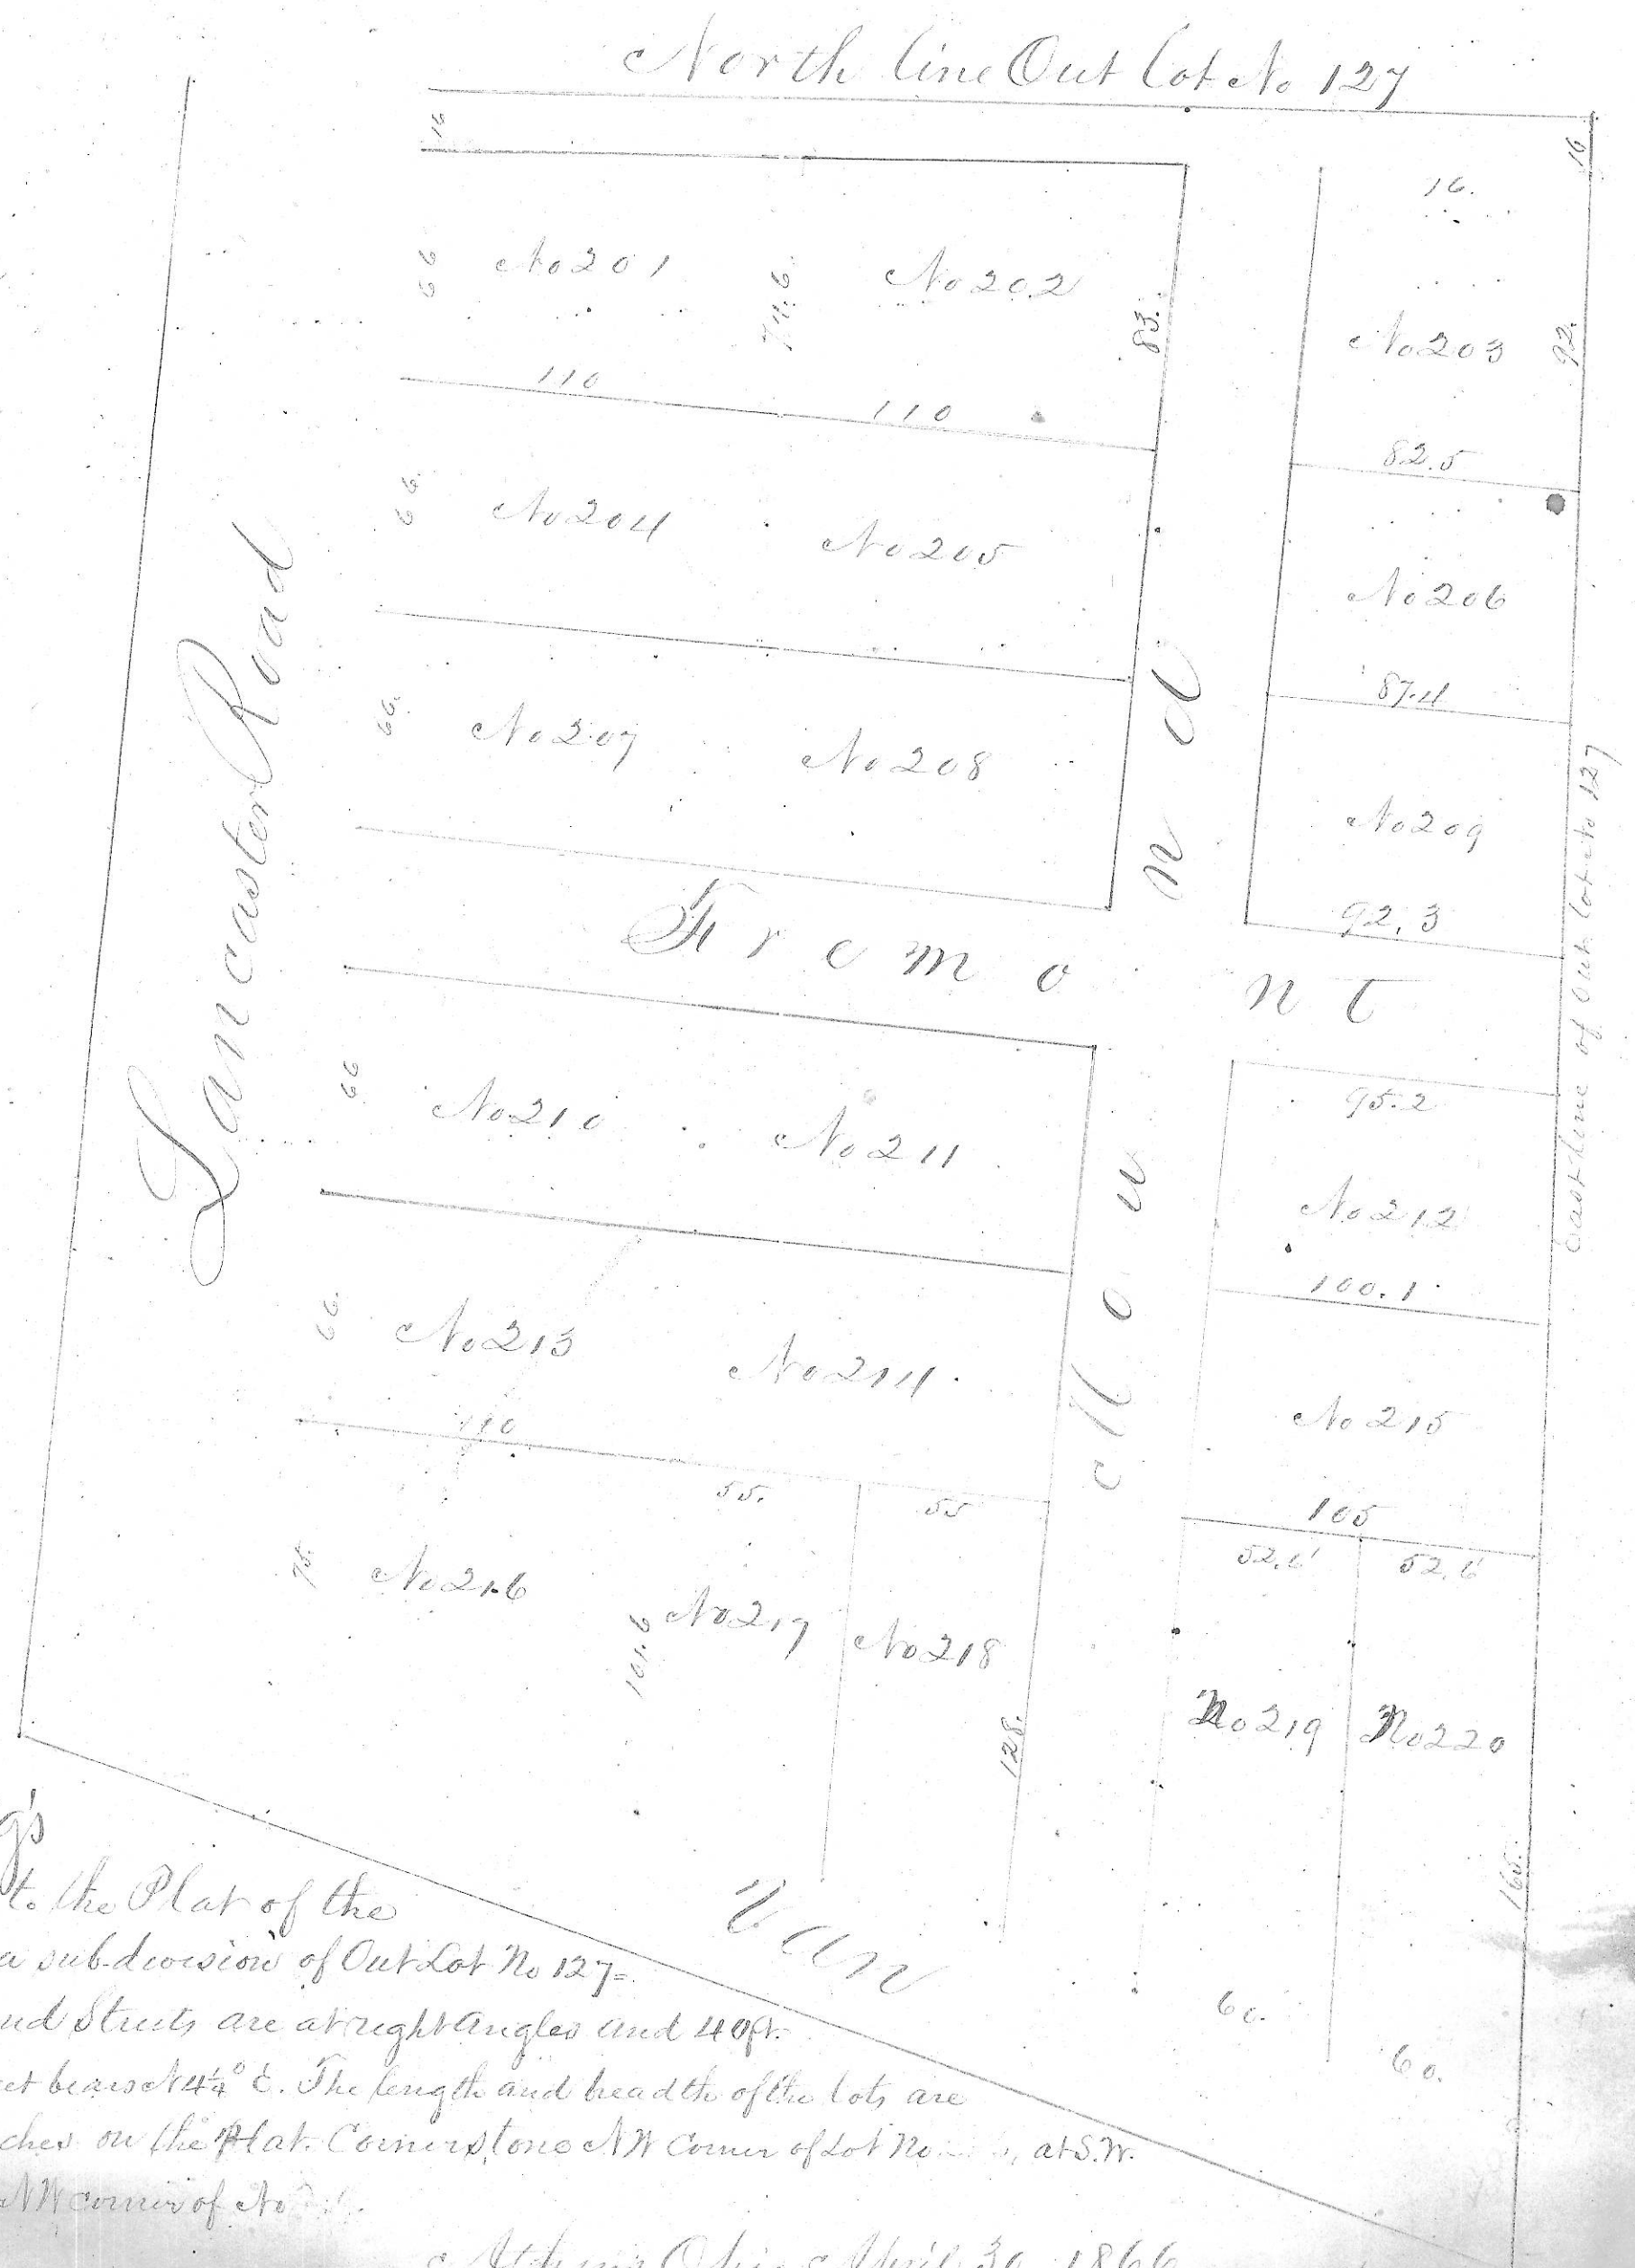 North line Out Lot No 127
16
16
16.
66
No 201
74.6
No 202
83.
No 203
92.
110
110
82.5
66.
No 204
No 205
No 206
87.4
66.
No 207
No 208
No 209
92.3
Lancaster Road
Fremont
Mound
East line of Out Lot No 127
66
No 210
No 211
95.2
No 212
100.1
66.
No 213
No 214
No 215
110
55.
55
105
52.6
52.6
75.
No 216
101.6
No 217
No 218
128.
No 219
No 220
165.
60.
60.
g's
to the Plat of the
a sub-division of Out Lot No 127=
nd Streets are at right angles and 40 ft.
et bears N 4¼° E. The length and breadth of the lots are
ches on the Plat. Corner stone NW Corner of Lot No at S.W.
NW corner of No
Athens Ohio April 30 1866